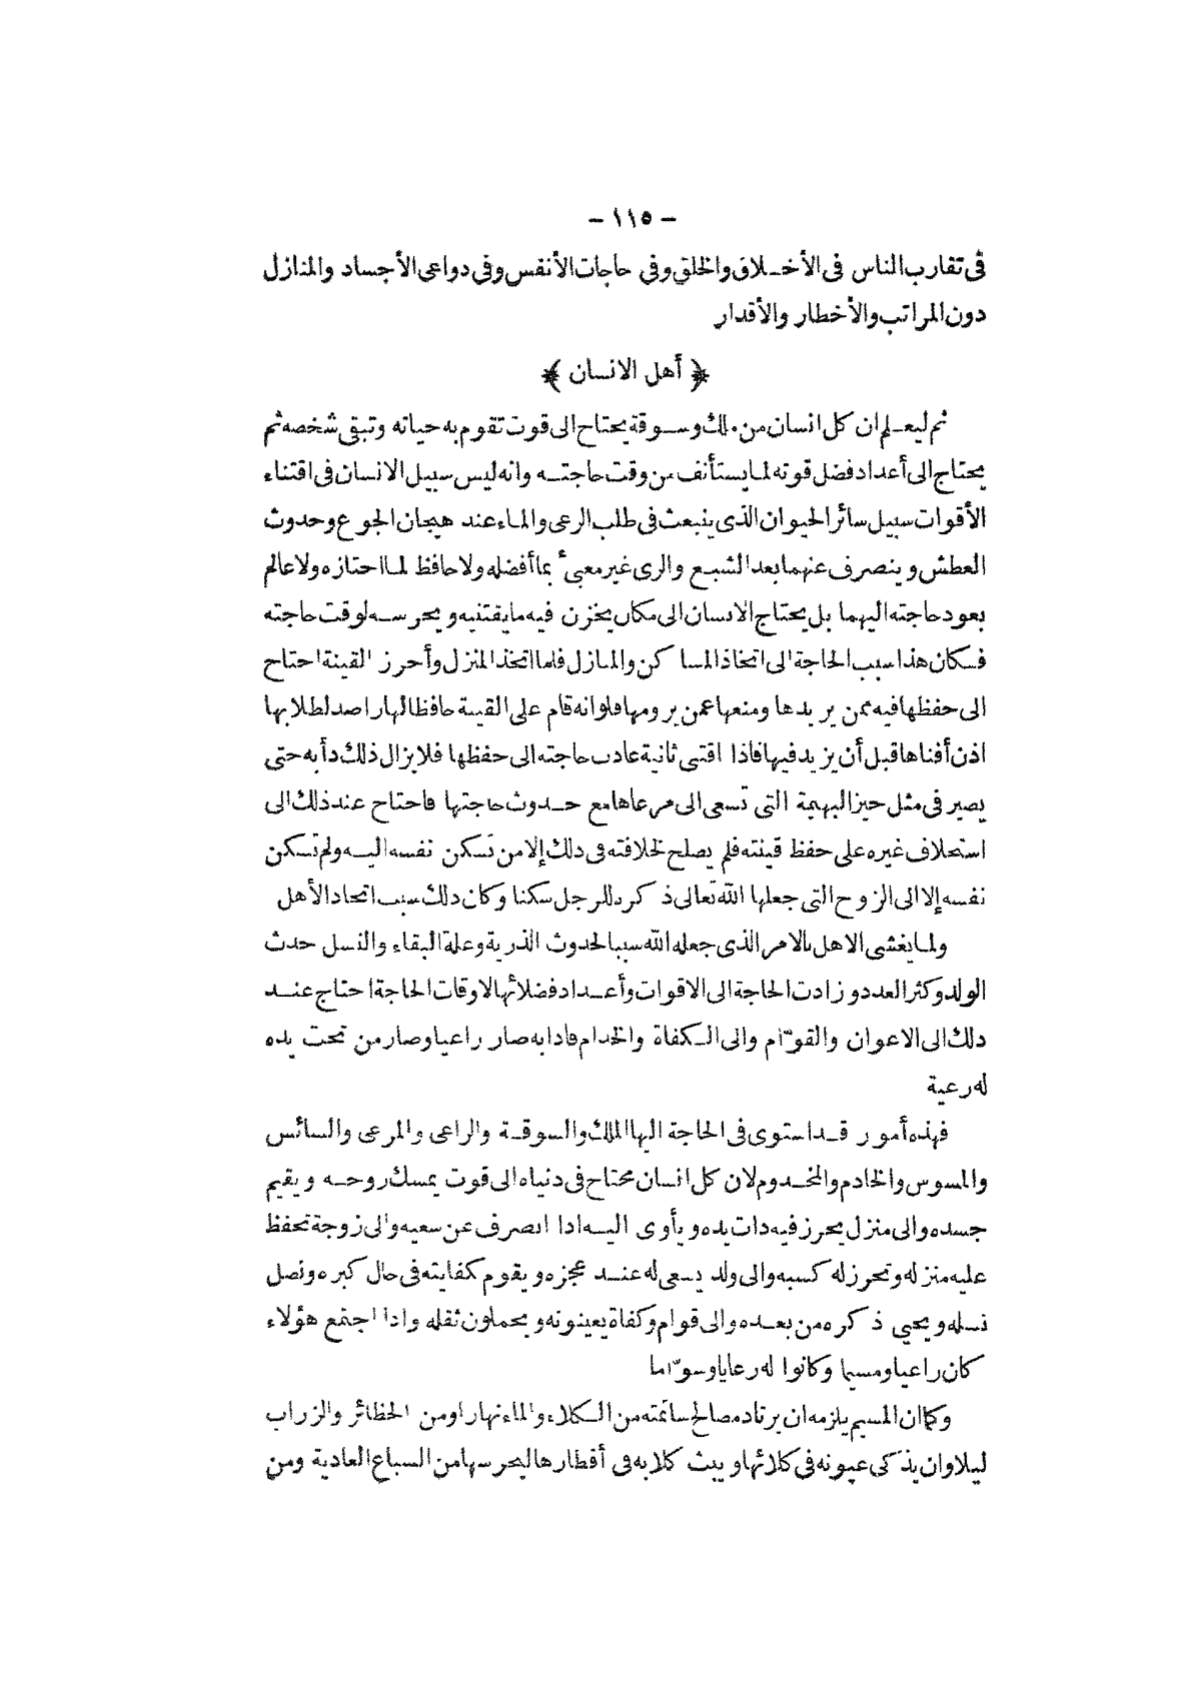 – ١١٥ –
فى تقارب الناس فى الأخلاق والخلق وفى حاجات الأنفس وفى دواعى الأجساد والمنازل
دون المراتب والأخطار والأقدار
﴿ أهل الانسان ﴾
ثم ليعلم ان كل انسان من ملك وسوقة يحتاج الى قوت تقوم به حياته وتبقى شخصه ثم
يحتاج الى أعداد فضل قوته لما يستأنف من وقت حاجته وانه ليس سبيل الانسان فى اقتناء
الأقوات سبيل سائر الحيوان الذى ينبعث فى طلب الرعى والماء عند هيجان الجوع وحدوث
العطش وينصرف عنهما بعد الشبع والرى غير معبئ بما أفضله ولا حافظ لما احتازه ولا عالم
بعود حاجته اليهما بل يحتاج الانسان الى مكان يخزن فيه ما يقتنيه ويحرسه لوقت حاجته
فكان هذا سبب الحاجة الى اتخاذ المساكن والمنازل فلما اتخذ المنزل وأحرز القينة احتاج
الى حفظها فيه ممن يريدها ومنعها عمن يرومها فلو انه قام على القينة حافظا لها راصد لطلابها
اذن أفناها قبل أن يزيد فيها فاذا اقتنى ثانية عادت حاجته الى حفظها فلا يزال ذلك دأبه حتى
يصير فى مثل حيز البهيمة التى تسعى الى مرعاها مع حدوث حاجتها فاحتاج عند ذلك الى
استخلاف غيره على حفظ قينته فلم يصلح لخلافته فى ذلك إلا من تسكن نفسه اليه ولم تسكن
نفسه إلا الى الزوج التى جعلها الله تعالى ذكره للرجل سكنا وكان ذلك سبب اتخاذ الأهل
ولما يغشى الاهل بالامر الذى جعله الله سببا لحدوث الذرية وعلة البقاء والنسل حدث
الولد وكثر العدد وزادت الحاجة الى الاقوات وأعداد فضلاتها لاوقات الحاجة احتاج عند
ذلك الى الاعوان والقوّام والى الكفاة والخدام فاذا به صار راعيا وصار من تحت يده
له رعية
فهذه أمور قد استوى فى الحاجة اليها الملك والسوقة والراعى والمرعى والسائس
والمسوس والخادم والمخدوم لان كل انسان محتاج فى دنياه الى قوت يمسك روحه ويقيم
جسده والى منزل يحرز فيه ذات يده ويأوى اليه اذا انصرف عن سعيه والى زوجة تحفظ
عليه منزله وتحرز له كسبه والى ولد يسعى له عند عجزه ويقوم كفايته فى حال كبره ونصل
نسله ويحيي ذكره من بعده والى قوام وكفاة يعينونه ويحملون ثقله واذا اجتمع هؤلاء
كان راعيا ومسيما وكانوا له رعايا وسوّاما
وكما ان المسيم يلزمه ان يرتاد مصالح سائمته من الكلاء والماء نهارا ومن الحظائر والزراب
ليلا وان يذكى عيونه فى كلائها ويبث كلابه فى أقطارها ليحرسها من السباع العادية ومن